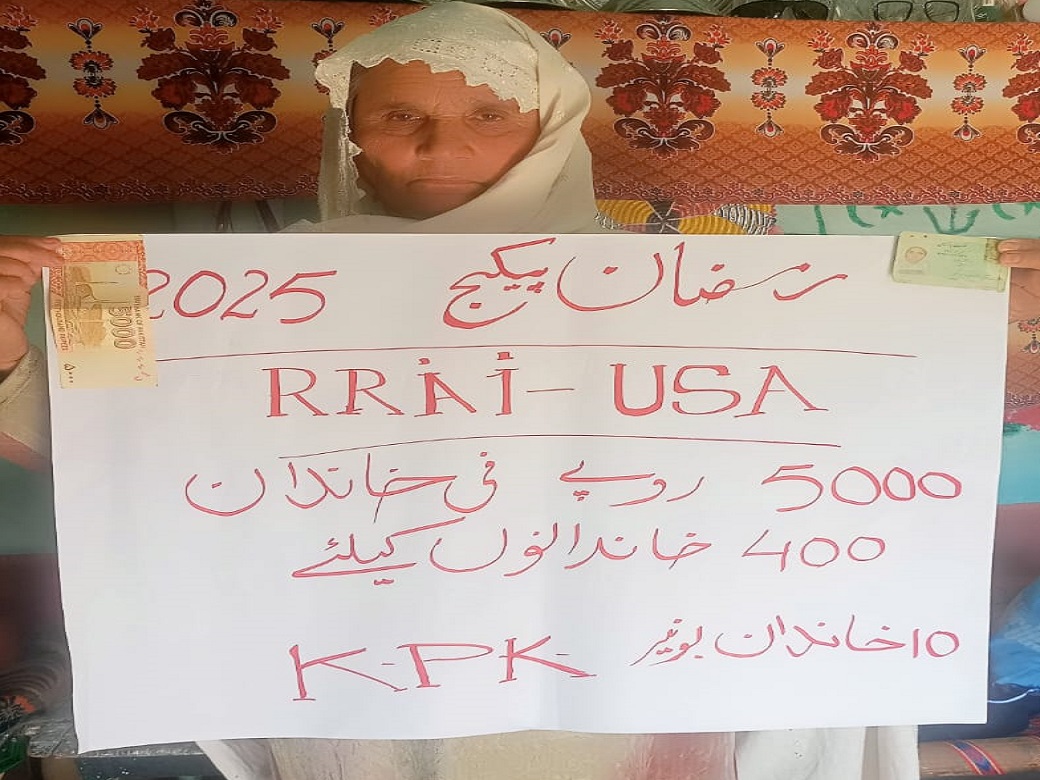 رمضان پیکیج 2025
RRAI - USA
5000 روپے فی خاندان
400 خاندانوں کیلئے
10 خاندان بونیر K.P.K
5000